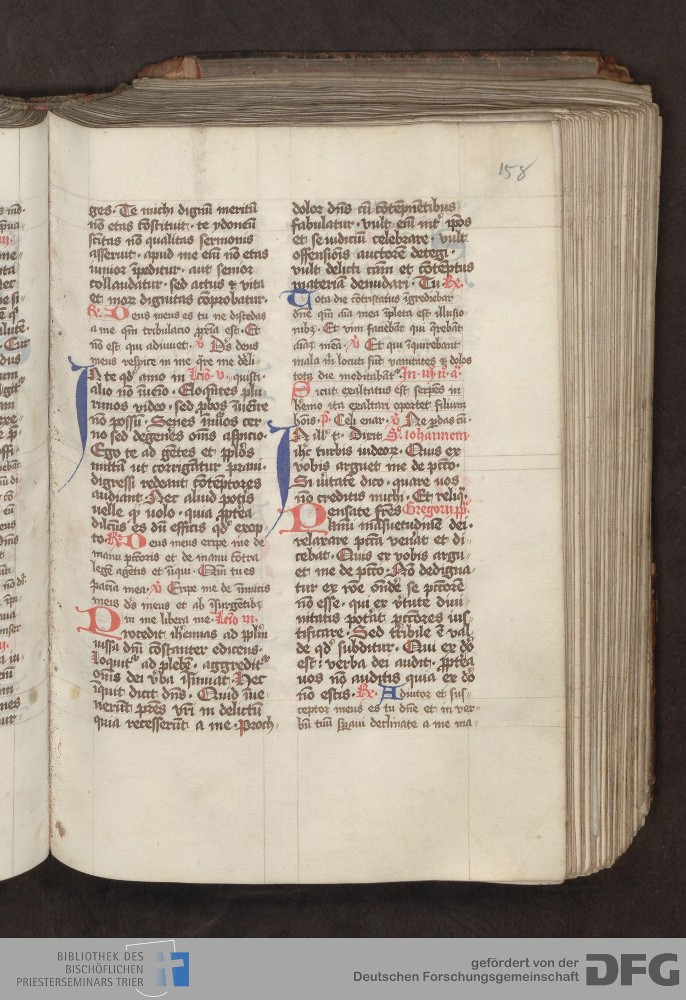 158
ges. Te michi dignū meritū
nō etas cōstituit. te ydoneū
scitas nō qualitas sermonis
asseruit. apud me em̄ nō etas
iunior īpeditur. aut senior
collaudatur. sed actus ⁊ vita
et mor dignitas cōprobatur.
R. Deus meus es tu ne discedas
a me qm̄ tribulatio ꝓxīa est. Et
nō est qui adiuuet. v Dn̄s deus
meus respice in me q̄re me deli
N te qd' amo in Lcīo. v. quisti.
alio nō īueīo. Eloq̄ntes plu
rimos video. sed ꝓbos īueīre
nō possū. Senes īnuīos cer
no sed degen̄es om̄s aspicio.
Ego te ad gētes et ppl'os
mittā ut corrigātur praui.
digressi redeant cōtēptores
audiant. Nec aliud potīs
velle q̄ volo. quia ꝓptea
dilc̄us es dū efficis qd' exop
to. R. Deus meus eripe me de
manu pctōris et de manu cōtra
legē agētis et iniqui. Qm̄ tu es
paciā mea. v Eripe me de īimicis
meis ds meus et ab īsurgētibȝ
in me libera me. Lcīo vi.
Procedit ih'emias ad ppl'm
iussu dn̄i cōstanter edicens.
Loquit᷑ ad plebē. aggredit᷑
om̄s dei v̄ba īsinuat. Hec
inquit dicit dn̄s. Quid īue
nerūt pr̄es vr̄i in delictū
quia recesserūt a me. Proch
dolor dn̄s cū cōtēpnētibus
fabulatur. vult em̄ int' ip̄os
et se iudiciū celebrare. vult
offensiōis auctorē detegi.
vult delicti cām et cōtēptus
materiā denudari. Tu R.
Tota die cōtristatus īgrediebar
dn̄e qm̄ aīa mea īpleta est illusio
nibȝ. Et vim faciebāt qui q̄rebāt
aīaȝ meā. v Et qui īquirebant
mala m̄ locuti sūt vanitates ⁊ dolos
tota die meditabāt᷑. In iii. n̄. a.
Sicut exaltatus est serpēs in
h'emo ita exaltari oportet filium
hōis. p̄. Celi enar. v Ne pdas cū
N ill' t'. Dixit S. Iohannem.
ih'c turbis iudeoꝝ. Quis ex
vobis arguet me de pctō.
Si v̄itatē dico. quare vos
nō creditis michi. Et reliq̄.
Pensate fr̄es Gregorij pp̄.
kāmi māsuetudinē dei.
relaxare pctm̄ ven̄at et di
cebat. Quis ex vobis argu
et me de pctō. Nō dedigna
tur ex rōe ondē se pctōrē
nō esse. qui ex v̄tute diui
nitatis pot'at pctōres ius
tificare. Sed tr̄ibile ē val
de qd' subditur. Qui ex dō
est. verba dei audit. ꝓptea
vos nō auditis quia ex dō
nō estis. R. Adiutor et sus
ceptor meus es tu dn̄e et in ver
bū tuū sꝑaui declinate a me ma
BIBLIOTHEK DES
BISCHÖFLICHEN
PRIESTERSEMINARS TRIER
gefördert von der
Deutschen Forschungsgemeinschaft
DFG